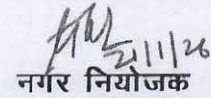 21/1/26
नगर नियोजक